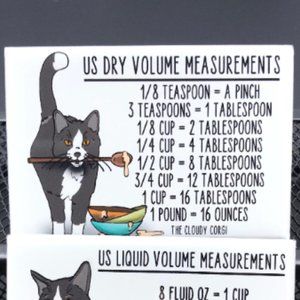 US DRY VOLUME MEASUREMENTS
1/8 TEASPOON = A PINCH
3 TEASPOONS = 1 TABLESPOON
1/8 CUP = 2 TABLESPOONS
1/4 CUP = 4 TABLESPOONS
1/2 CUP = 8 TABLESPOONS
3/4 CUP = 12 TABLESPOONS
1 CUP = 16 TABLESPOONS
1 POUND = 16 OUNCES
THE CLOUDY CORGI
US LIQUID VOLUME MEASUREMENTS
8 FLUID OZ = 1 CUP